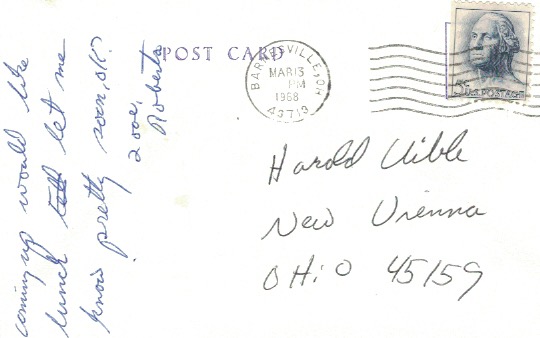 POST CARD
BARNESVILLE, OH
MAR 13
PM
1968
43713
5¢ U.S. POSTAGE
coming up would like
lunch let me
know pretty soon, OK?
Love,
Roberta
Harold Uible
New Vienna
OHiO 45159